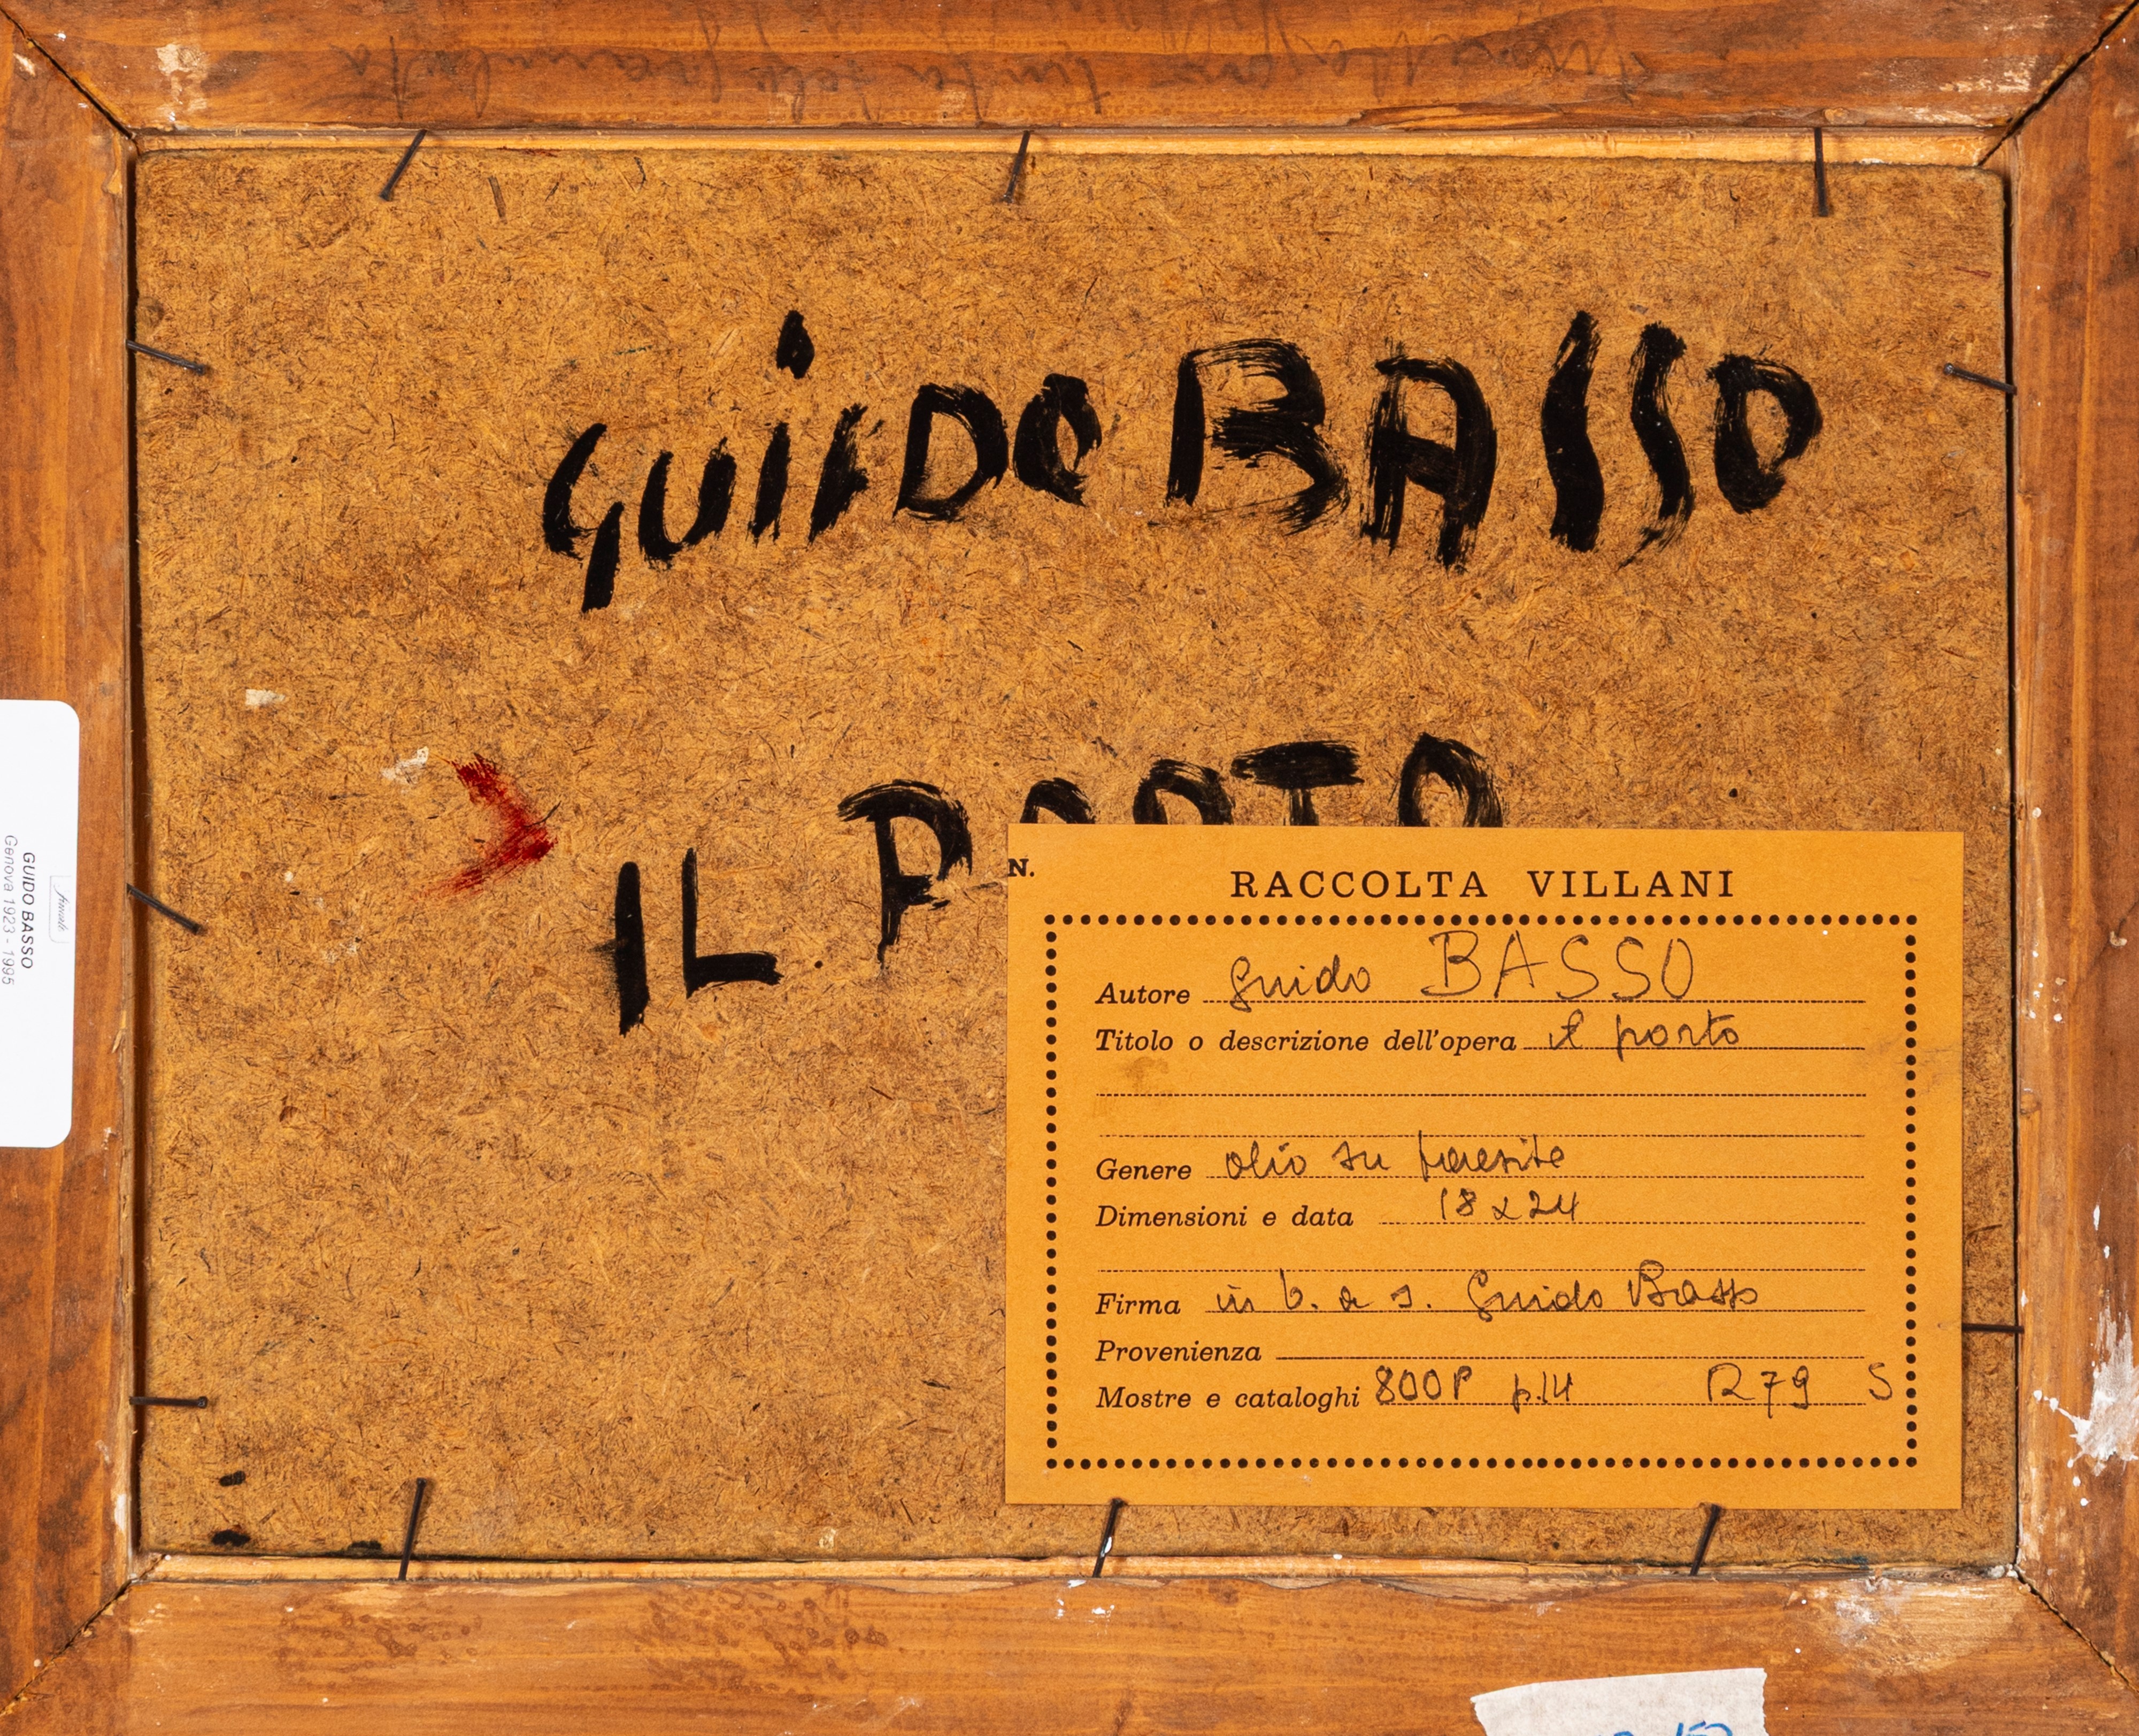 GUIDO BASSO
IL PORTO
N.
RACCOLTA VILLANI
Autore Guido BASSO
Titolo o descrizione dell'opera il porto
Genere olio su faesite
Dimensioni e data 18x24
Firma in b. a s. Guido Basso
Provenienza
Mostre e cataloghi 800P p.14 R79 S
GUIDO BASSO
Genova 1923 - 1995